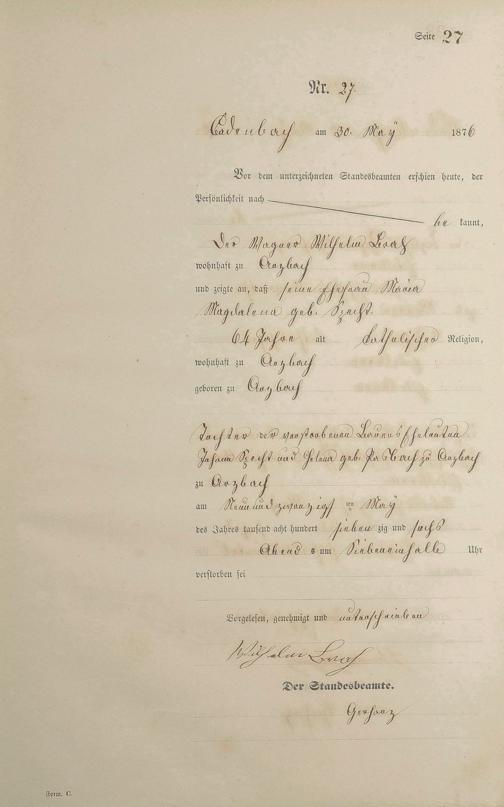 Seite 27
Nr. 27
Cadenbach am 30. May 1876
Vor dem unterzeichneten Standesbeamten erschien heute, der
Persönlichkeit nach
be kannt,
der Wagner Wilhelm Brach
wohnhaft zu Arzbach
und zeigte an, daß seine Ehefrau Maria
Magdalena geb. Specht
64 Jahre alt katholischer Religion,
wohnhaft zu Arzbach
geboren zu Arzbach
Tochter der verstorbenen Bauers Eheleuten
Johann Specht und Helena geb. zu Arzbach
zu Arzbach
am Neun und zwanzigsten May
des Jahres tausend acht hundert sieben zig und sechs
Abend s um Siebeneinhalb Uhr
verstorben sei
Vorgelesen, genehmigt und unterschrieben
Wilhelm Brach
Der Standesbeamte.
Form. C.